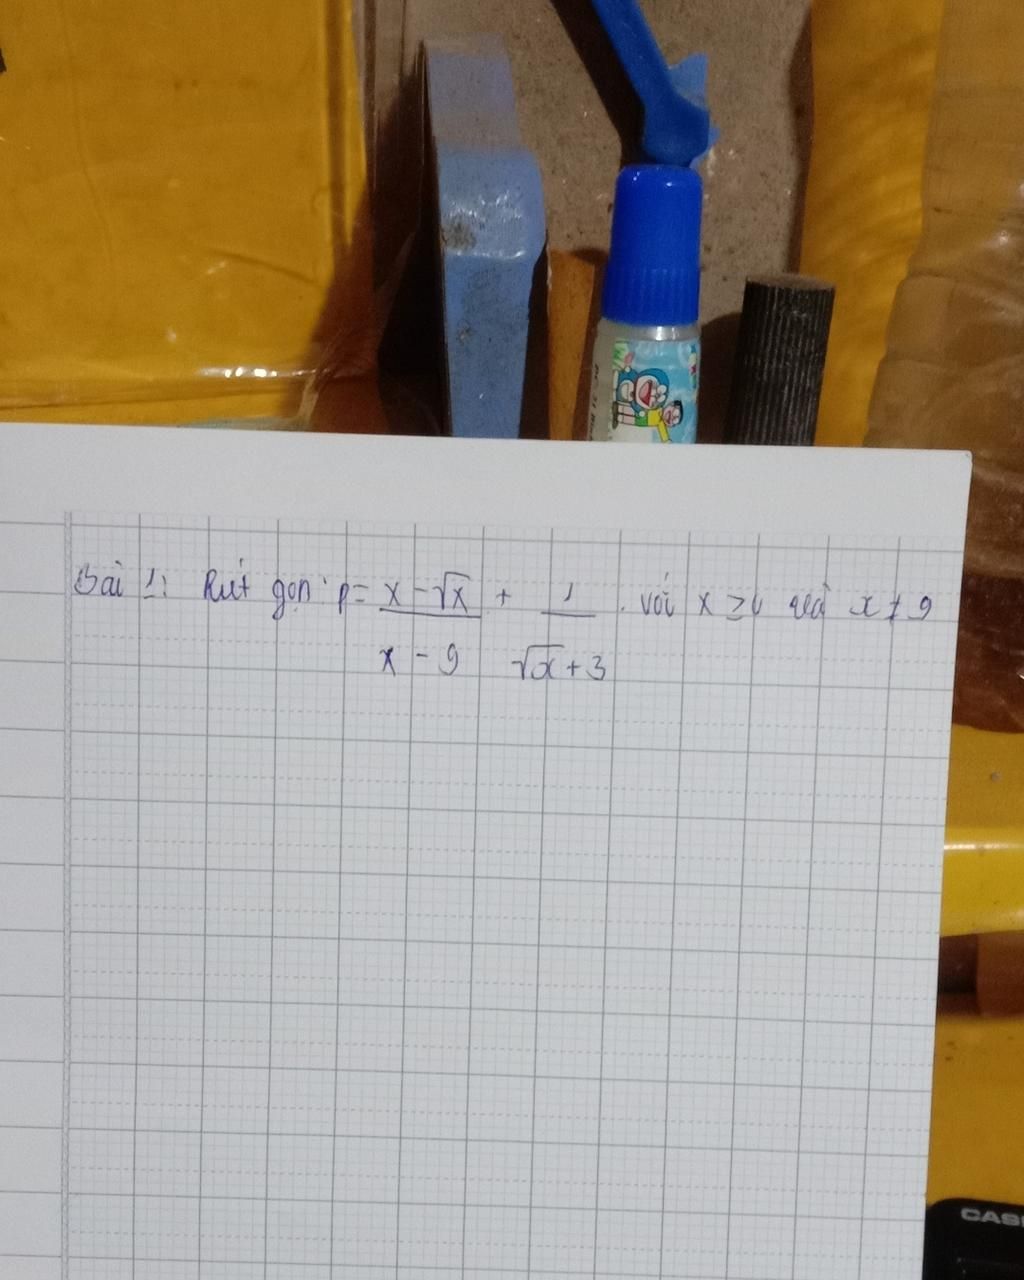 Bài 1: Rút gọn: P = x - √x / x - 9 + 1 / √x + 3 . với x ≥ 0 và x ≠ 9
CASI